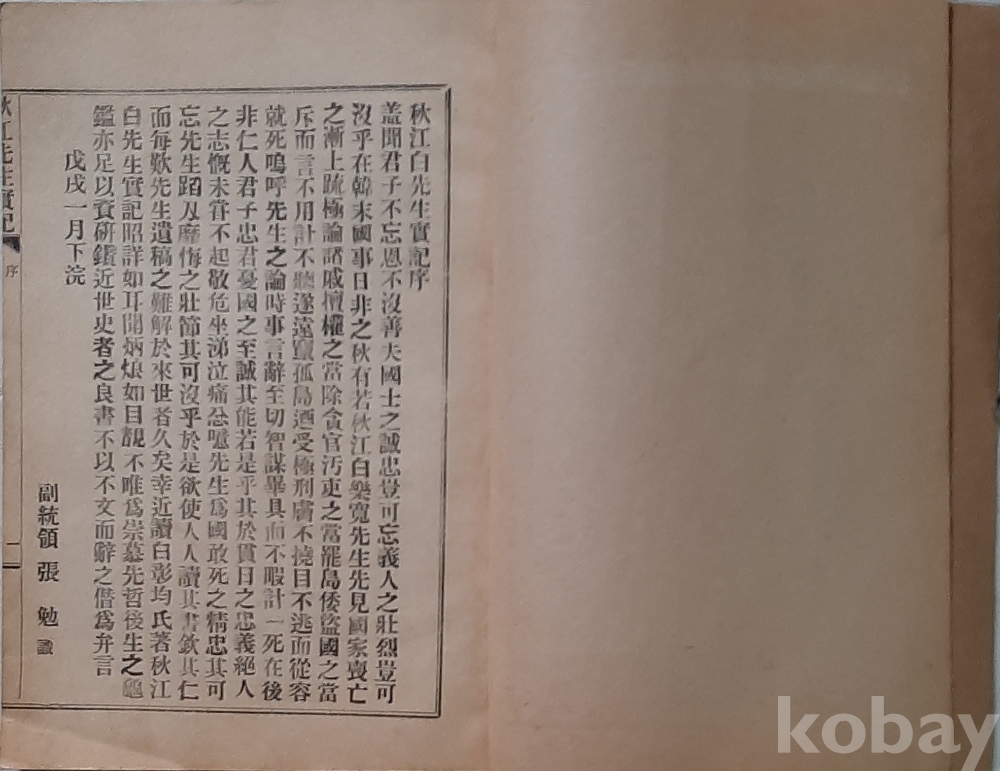 秋江白先生實記序
蓋聞君子不忘恩不沒善夫國士之誠忠豈可忘義人之壯烈豈可
沒乎在韓末國事日非之秋有若秋江白樂寬先生先見國家喪亡
之漸上疏極論諸戚擅權之當除貪官汚吏之當罷島倭盜國之當
斥而言不用計不聽遂遠竄孤島迺受極刑膚不撓目不逃而從容
就死嗚呼先生之論時事言辭至切智謀畢具而不暇計一死在後
非仁人君子忠君憂國之至誠其能若是乎其於貫日之忠義絕人
之志慨未甞不起敬危坐涕泣痛忿噫先生爲國敢死之精忠其可
忘先生蹈刄靡悔之壯節其可沒乎於是欲使人人讀其書欽其仁
而每歎先生遺稿之難解於來世者久矣幸近讀白彰均氏著秋江
白先生實記昭詳如耳聞炳烺如目覩不唯爲崇慕先哲後生之龜
鑑亦足以資硏鑽近世史者之良書不以不文而辭之僭爲弁言
戊戌一月下浣
副統領 張 勉 識
秋江先生實記
序
一
kobay